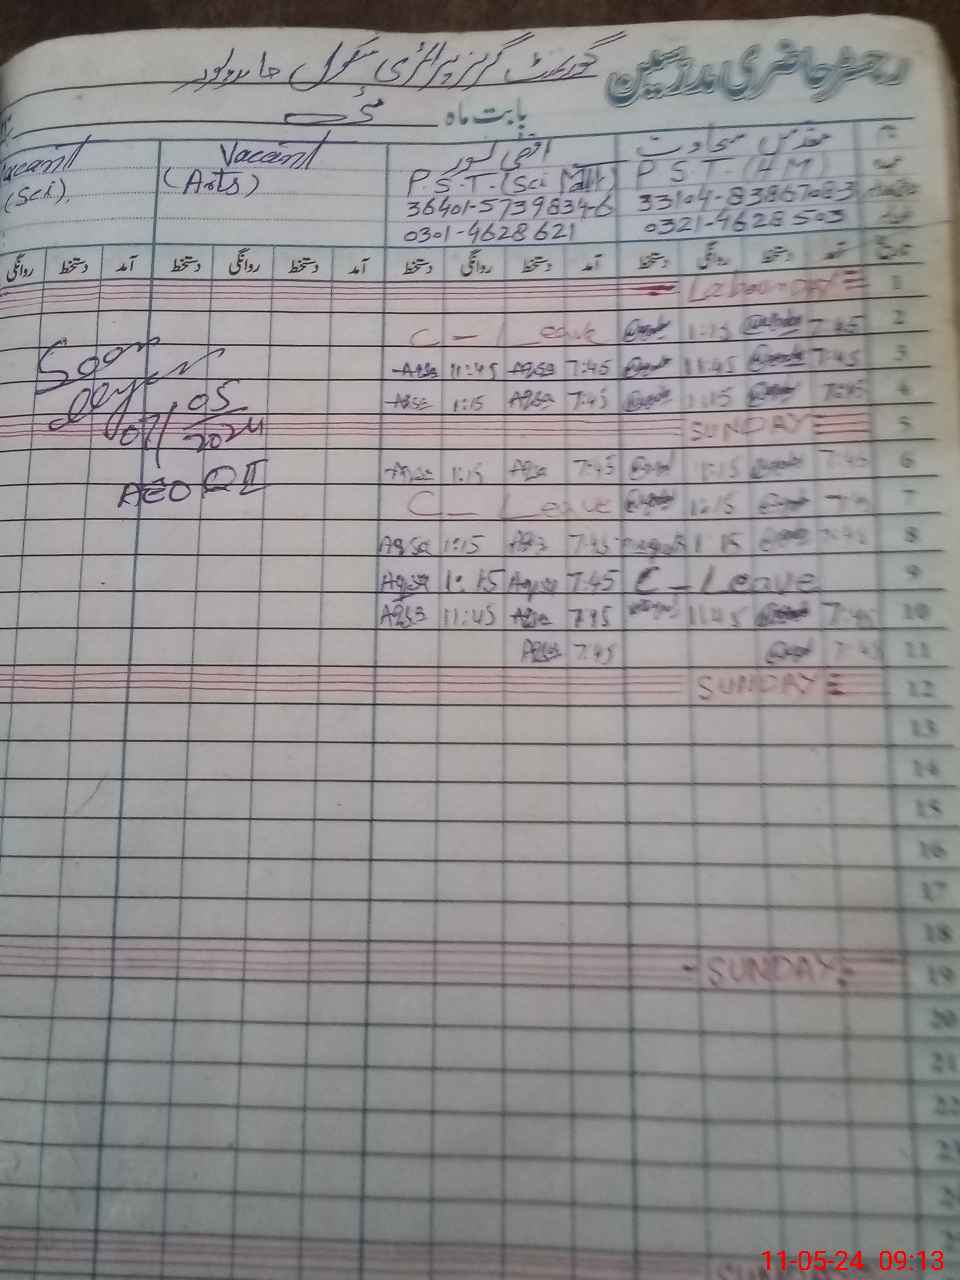 رجسٹر حاضری مدرسین گورنمنٹ گرلز پرائمری سکول
بابت ماہ مئی
Vacant Vacant
(Sci). (Arts) P.S.T.(Sci Math) P S T.(HM)
36401-5739834-6 33104-8386708-3
0301-4628621 0321-4628503
تاریخ آمد دستخط روانگی دستخط آمد دستخط روانگی دستخط آمد دستخط روانگی دستخط آمد دستخط روانگی
1 Labour Day
2 7:45 1:15 C - Leave
3 7:45 11:45 7:45 Aqsa 11:45 Aqsa
4 7:45 1:15 7:45 Aqsa 1:15 Aqsa
5 SUNDAY
6 7:45 1:15 7:45 Aqsa 1:15 Aqsa
7 7:45 1:15 C - Leave
8 7:45 1:15 7:45 Aqsa 1:15 Aqsa
9 C - Leave 7:45 Aqsa 1:15 Aqsa
10 7:45 11:45 7:45 Aqsa 11:45 Aqsa
11 7:45 7:45 Aqsa
12 SUNDAY
13
14
15
16
17
18
19 SUNDAY
20
21
22
23
Seen
07/05
2024
AEO
11-05-24 09:13